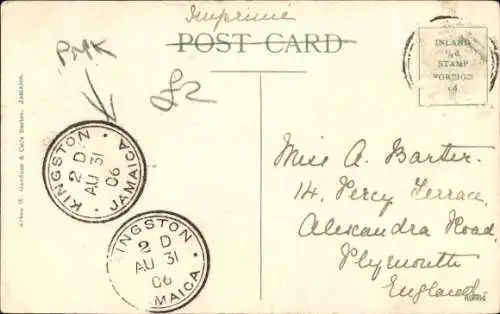 Imprimé
POST CARD
PMK
£2
INLAND
½d.
STAMP
FOREIGN
1d.
KINGSTON · JAMAICA ·
2 D
AU 31
06
KINGSTON
2 D
AU 31
06
JAMAICA ·
Miss A. Barter.
14, Percy Terrace,
Alexandra Road,
Plymouth
England
Aston W. Gardner & Co's Series, Jamaica.